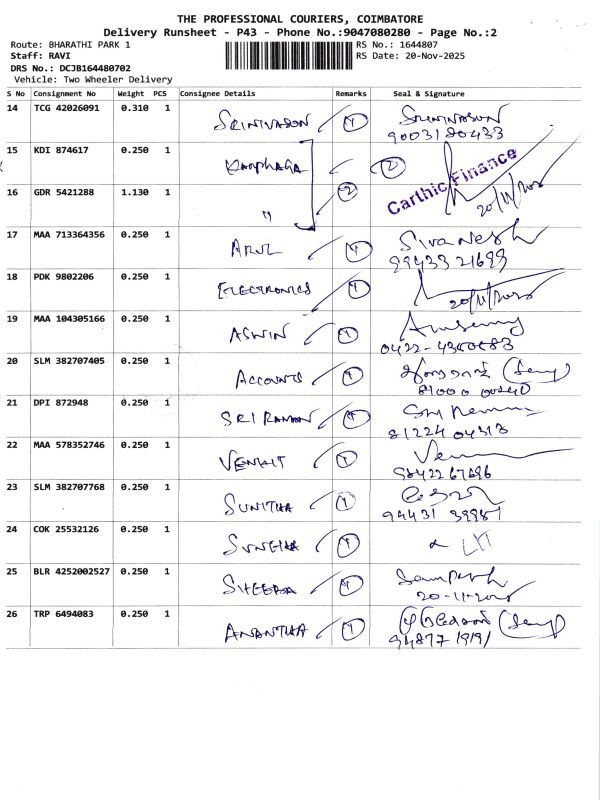 THE PROFESSIONAL COURIERS, COIMBATORE
Delivery Runsheet - P43 - Phone No.:9047080280 - Page No.:2
Route: BHARATHI PARK 1 RS No.: 1644807
Staff: RAVI RS Date: 20-Nov-2025
DRS No.: DCJB164480702
Vehicle: Two Wheeler Delivery
S No Consignment No Weight PCS Consignee Details Remarks Seal & Signature
14 TCG 42026091 0.310 1 SRINIVASON 1 Srinivason
9003180433
15 KDI 874617 0.250 1 2 Carthic Finance
16 GDR 5421288 1.130 1 " 2 20/11/2025
17 MAA 713364356 0.250 1 ARUL 1 Sivanesh
99433 21693
18 PDK 9802206 0.250 1 ELECTRONICS 1 20/11/2025
19 MAA 104305166 0.250 1 ASWIN 1
0422-4350583
20 SLM 382707405 0.250 1 ACCOUNTS 1
21 DPI 872948 0.250 1 SRI RAMAN 1
81224 04313
22 MAA 578352746 0.250 1 VENKIT 1
98422 67696
23 SLM 382707768 0.250 1 SUNITHA 1
94431 39951
24 COK 25532126 0.250 1 SUNGHA 1
25 BLR 4252002527 0.250 1 SHEEBA 1 Sampath
20-11-2025
26 TRP 6494083 0.250 1 ANANTHA 1
94877 19191